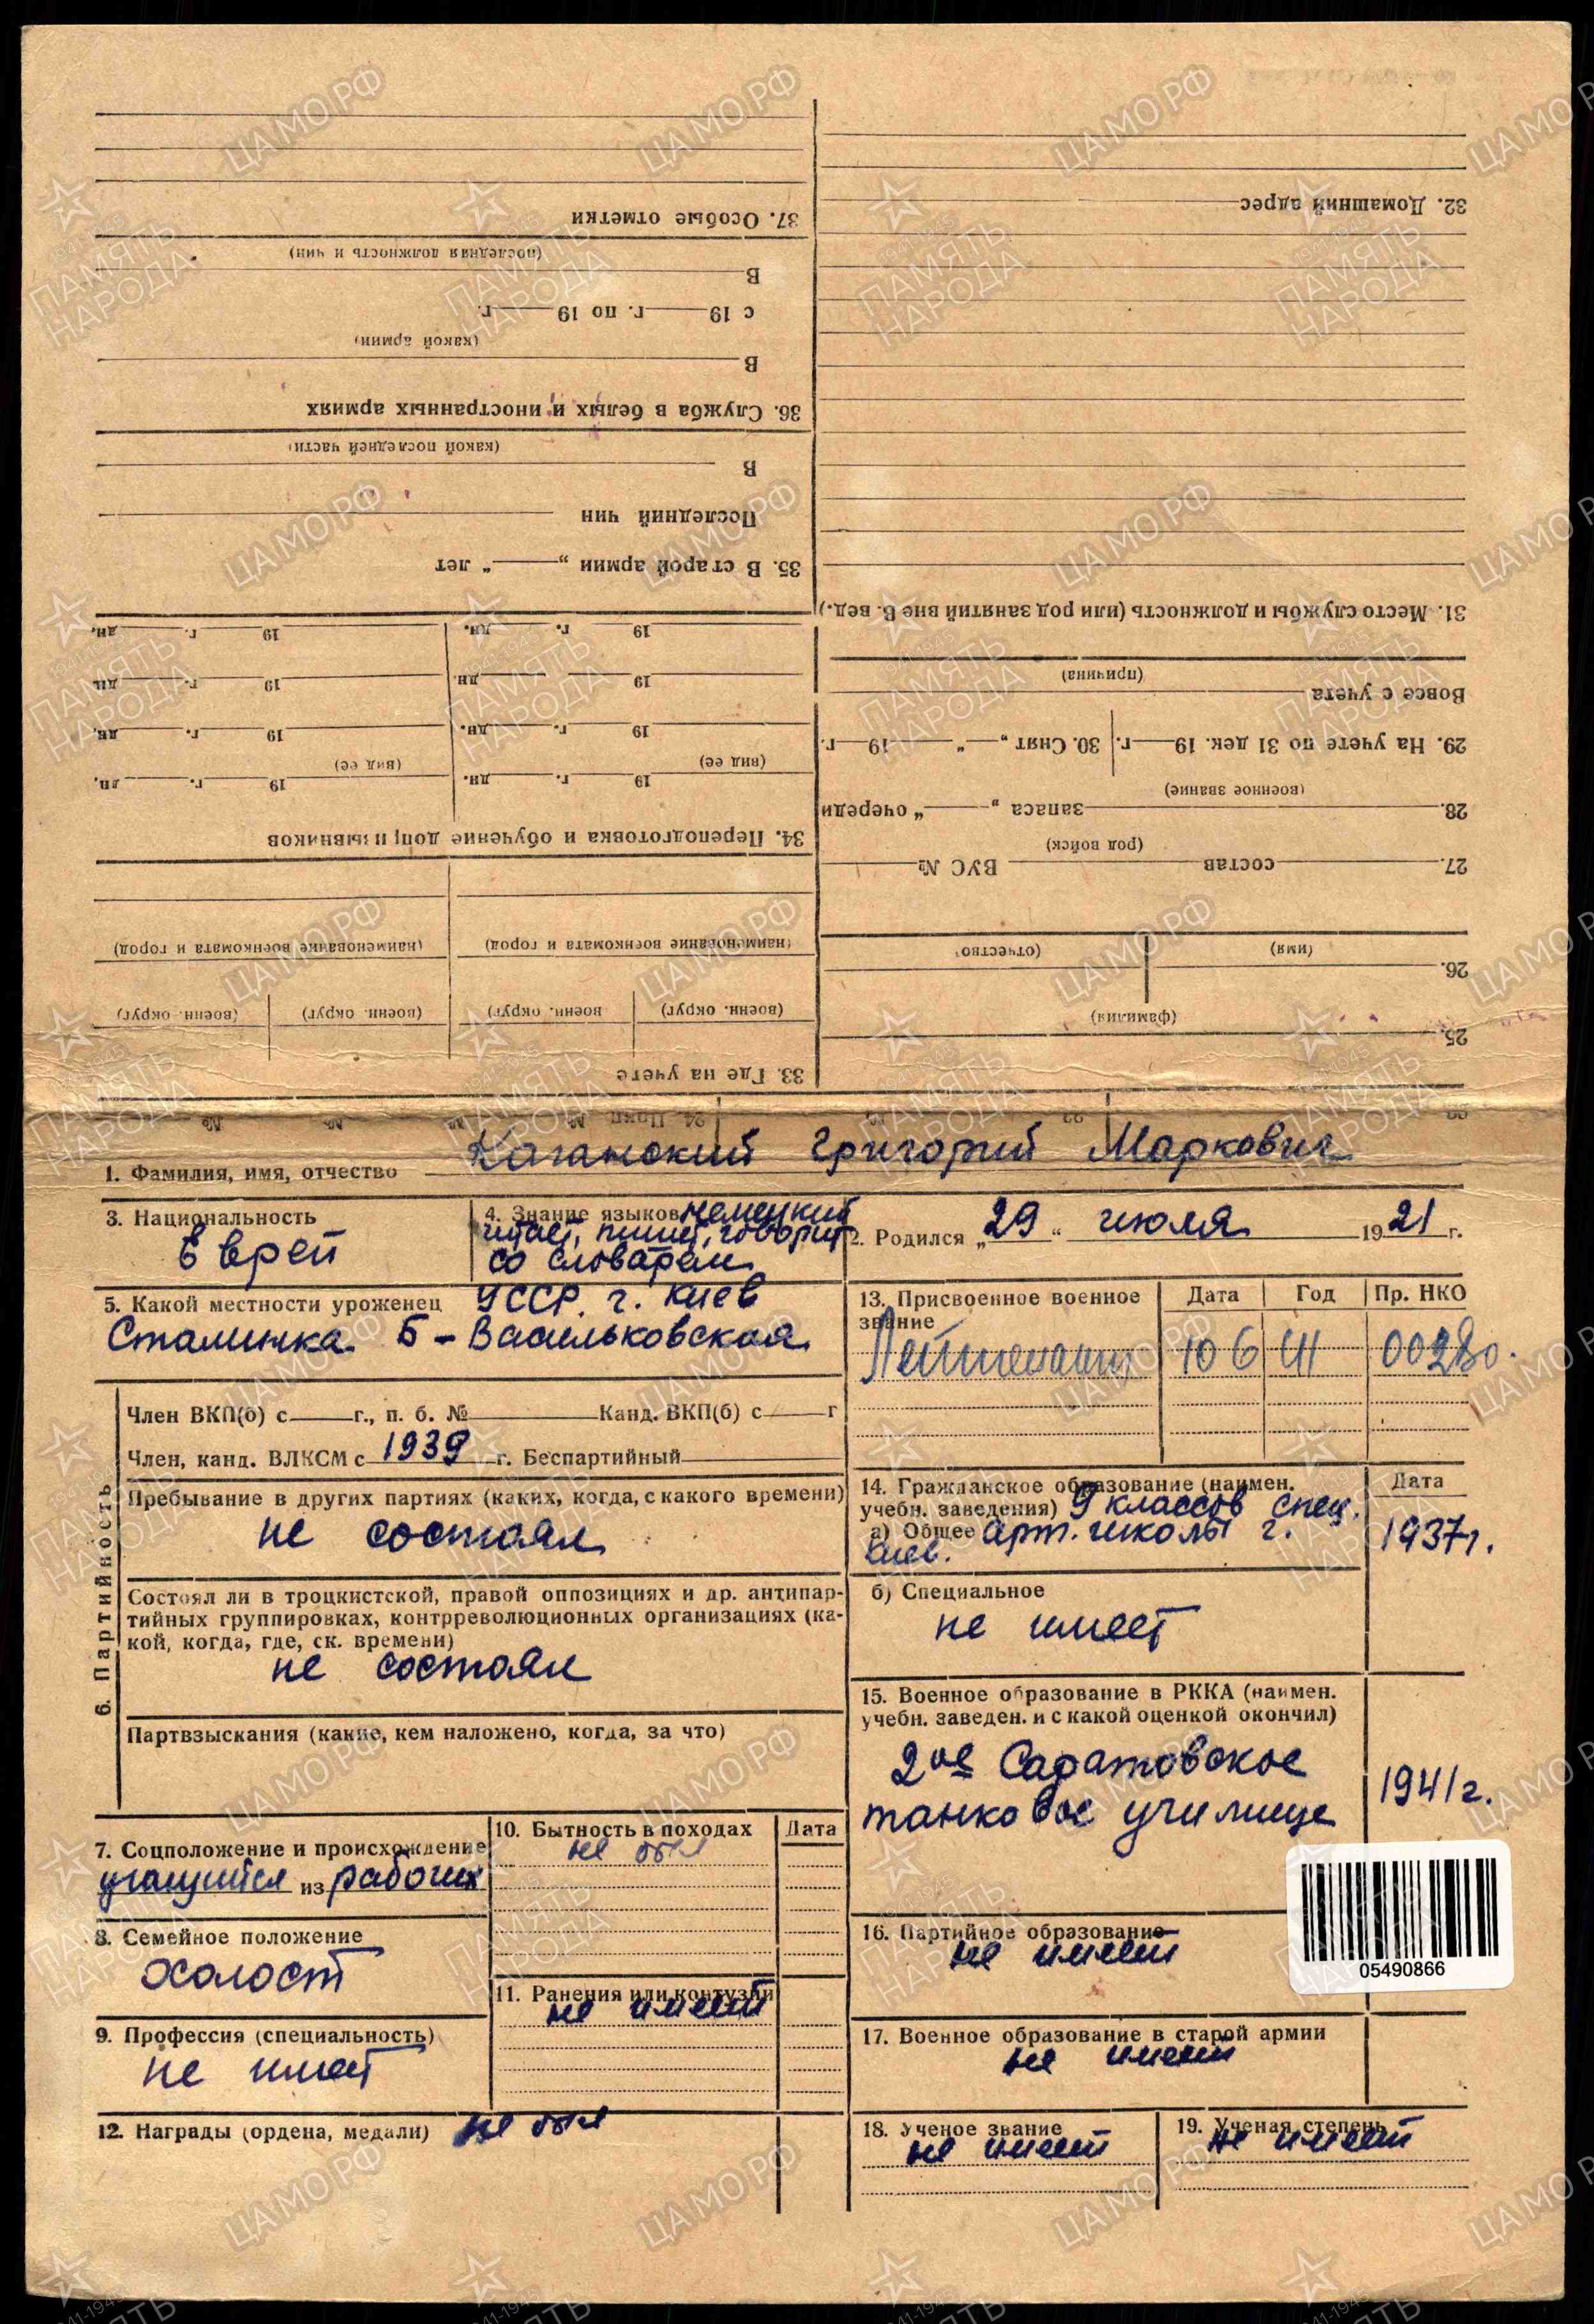 37. Особые отметки
(последняя должность и чин)
В
с 19 г. по 19 г.
(какой армии)
В
36. Служба в белых и иностранных армиях
(какой последней части)
В
Последний чин
35. В старой армии „ “ лет
19 г. дн. 19 г. дн.
19 дн. 19 г. дн.
19 г. дн. 19 г. дн.
(вид ее) (вид ее)
19 г. дн. 19 г. дн.
34. Переподготовка и обучение допризывников
(наименование военкомата и город) (наименование военкомата и город)
(военн. округ) (военн. округ) (военн. округ) (военн. округ)
33. Где на учете
32. Домашний адрес
31. Место службы и должность (или род занятий вне в. вед.)
(причина)
Вовсе с учета
29. На учете по 31 дек. 19 г. 30. Снят „ “ 19 г.
(военное звание)
28. запаса „ “ очереди
(род войск)
27. состав ВУС №
(имя) (отчество)
26.
(фамилия)
25.
№ № № 24. № 22
1. Фамилия, имя, отчество Каганский Григорий Маркович
3. Национальность
Еврей
4. Знание языков немецкий
читает, пишет, говорит
со словарем
2. Родился „29“ июля 1921 г.
5. Какой местности уроженец УССР. г. Киев
Сталинка. Б-Васильковская
13. Присвоенное военное звание Дата Год Пр. НКО
Лейтенант 10 6 41 00280.
6. Партийность
Член ВКП(б) с г., п. б. № Канд. ВКП(б) с г
Член, канд. ВЛКСМ с 1939 г. Беспартийный
Пребывание в других партиях (каких, когда, с какого времени)
не состоял
Состоял ли в троцкистской, правой оппозициях и др. антипар-
тийных группировках, контрреволюционных организациях (ка-
кой, когда, где, ск. времени)
не состоял
Партвзыскания (какие, кем наложено, когда, за что)
14. Гражданское образование (наимен. Дата
учебн. заведения) 9 классов спец.
а) Общее арт. школы г.
Киев. 1937г.
б) Специальное
не имеет
15. Военное образование в РККА (наимен.
учебн. заведен. и с какой оценкой окончил)
2ое Саратовское
танковое училище 1941г.
7. Соцположение и происхождение
учащийся из рабочих
8. Семейное положение
холост
9. Профессия (специальность)
не имеет
10. Бытность в походах Дата
не был
11. Ранения или контузии
не имеет
12. Награды (ордена, медали) не был
16. Партийное образование
не имеет
05490866
17. Военное образование в старой армии
не имеет
18. Ученое звание
не имеет
19. Ученая степень
не имеет
ЦАМО РФ
1941-1945
ПАМЯТЬ
НАРОДА